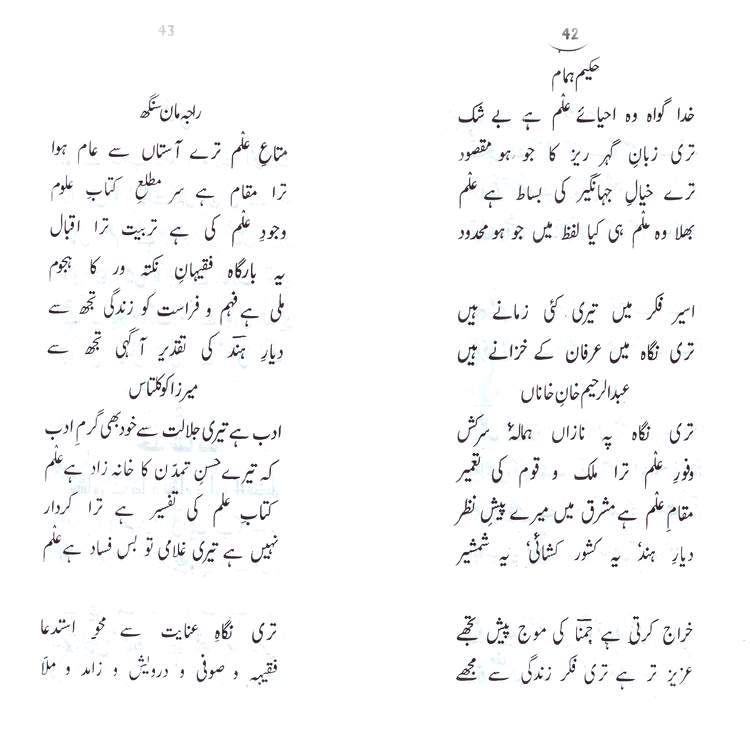 42
حکیم ہمام
خدا گواہ وہ احیائے علم ہے بے شک
تری زبانِ گہر ریز کا جو ہو مقصود
ترے خیالِ جہانگیر کی بساط ہے علم
بھلا وہ علم ہی کیا لفظ میں جو ہو محدود
اسیر فکر میں تیری کئی زمانے ہیں
تری نگاہ میں عرفان کے خزانے ہیں
عبدالرحیم خانِ خاناں
تری نگاہ پہ نازاں ہمالۂ سرکش
وفورِ علم ترا ملک و قوم کی تعمیر
مقامِ علم ہے مشرق میں میرے پیشِ نظر
دیارِ ہند' یہ کشور کشائی' یہ شمشیر
خراج کرتی ہے جمنا کی موج پیش تجھے
عزیز تر ہے تری فکر زندگی سے مجھے
43
راجہ مان سنگھ
متاعِ علم ترے آستاں سے عام ہوا
ترا مقام ہے سر مطلعِ کتابِ علوم
وجودِ علم کی ہے تربیت ترا اقبال
یہ بارگاہ فقیہانِ نکتہ ور کا ہجوم
ملی ہے فہم و فراست کو زندگی تجھ سے
دیارِ ہند کی تقدیرِ آگہی تجھ سے
میرزا کوکلتاس
ادب ہے تیری جلالت سے خود بھی گرمِ ادب
کہ تیرے حسنِ تمدّن کا خانہ زاد ہے علم
کتابِ علم کی تفسیر ہے ترا کردار
نہیں ہے تیری غلامی تو بس فساد ہے علم
تری نگاہِ عنایت سے محوِ استدعا
فقیہہ و صوفی و درویش و زاہد و ملّا